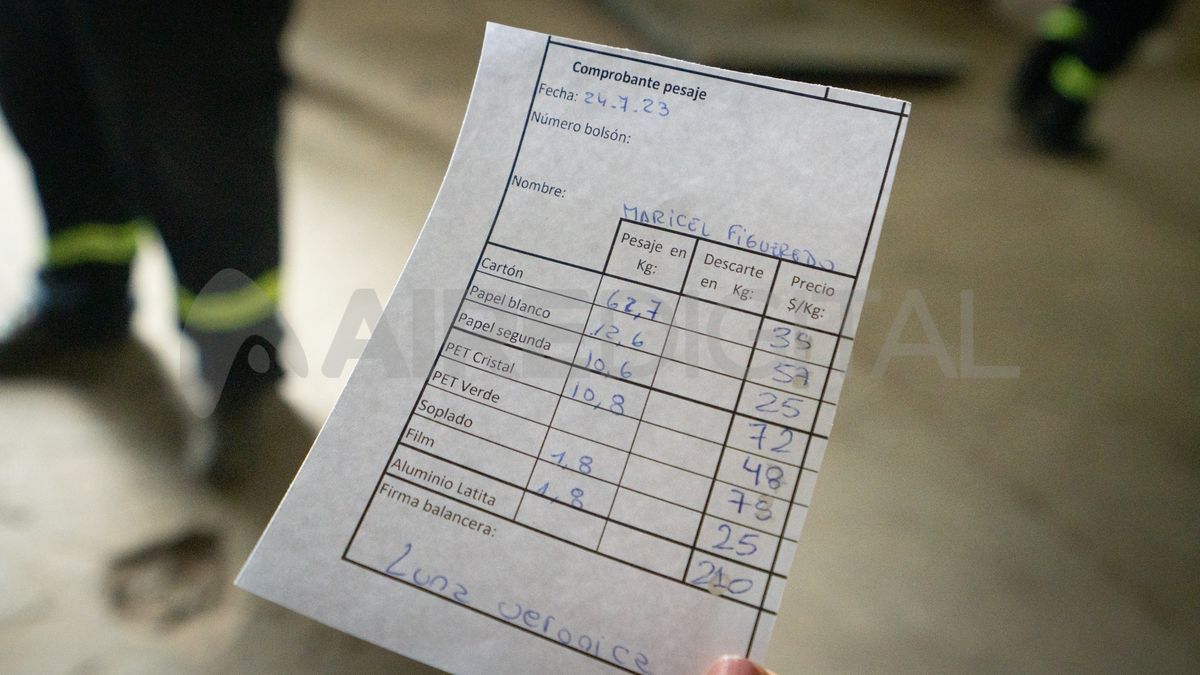 Comprobante pesaje
Fecha: 24.7.23
Número bolsón:
Nombre:
MARICEL FIGUEREDO
Pesaje en Kg: Descarte en Kg: Precio $/Kg:
Cartón 62,7
Papel blanco 12,6 57
Papel segunda 10,6 25
PET Cristal 10,8 72
PET Verde 48
Soplado 1,8 78
Film 1,8 25
Aluminio Latita 210
Firma balancera:
Luna veronica
AIREDIGITAL